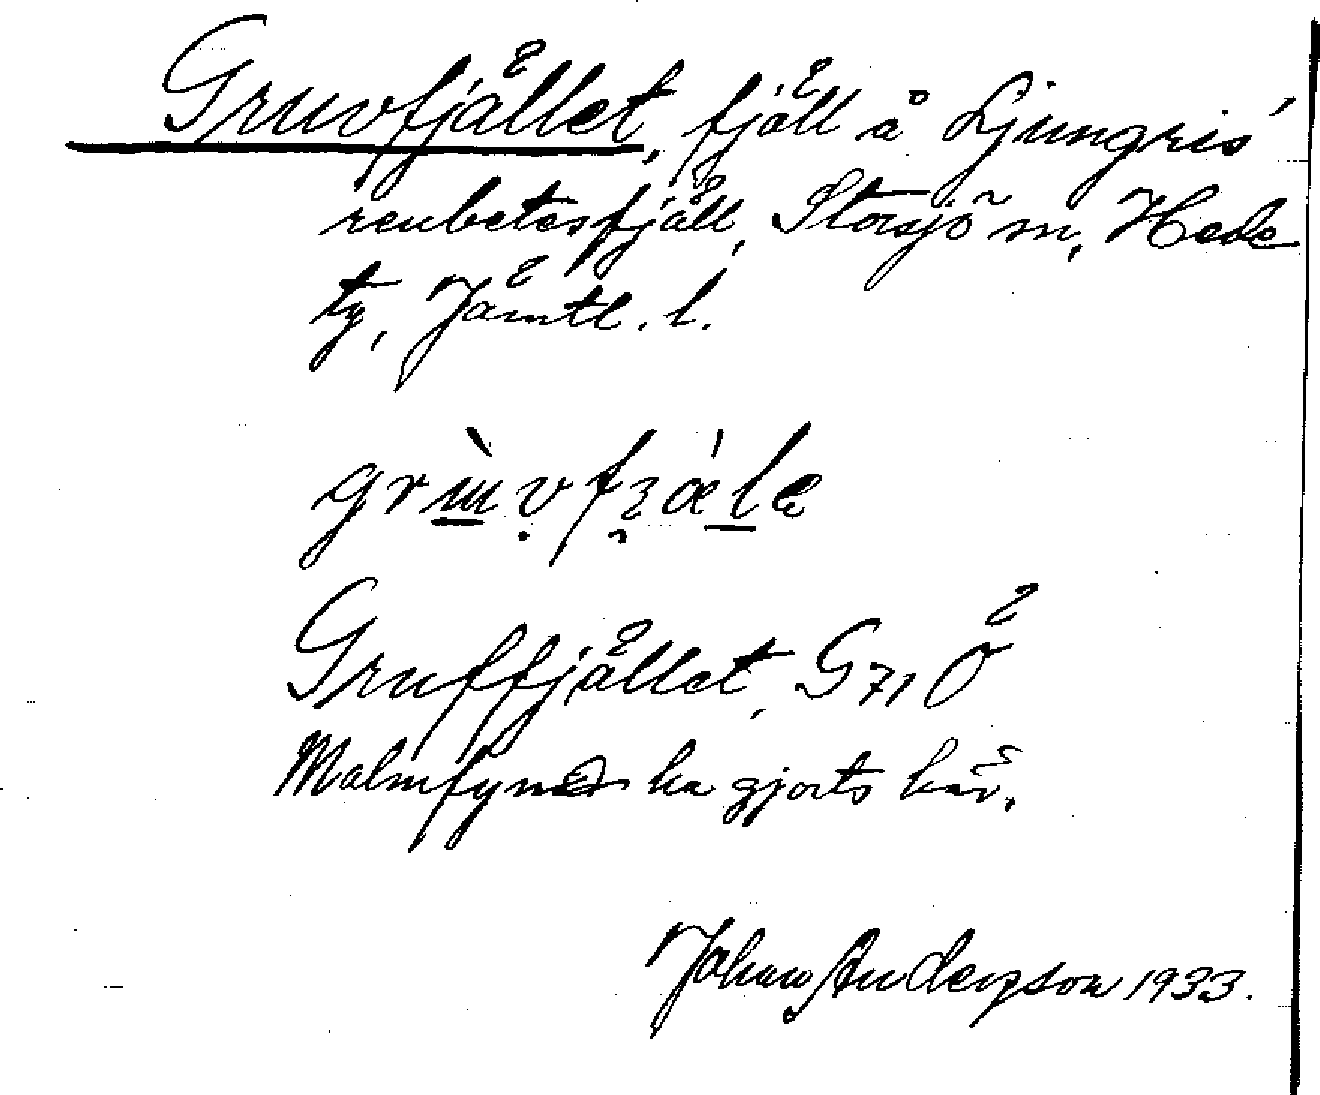 Gruvfjället, fjäll å Ljungris'
renbetesfjäll, Storsjö sn, Hede
tg, Jämtl. l.
Gruffjället, G71 Ö
Malmfynd ha gjorts här.
Johan Anderzson 1933.